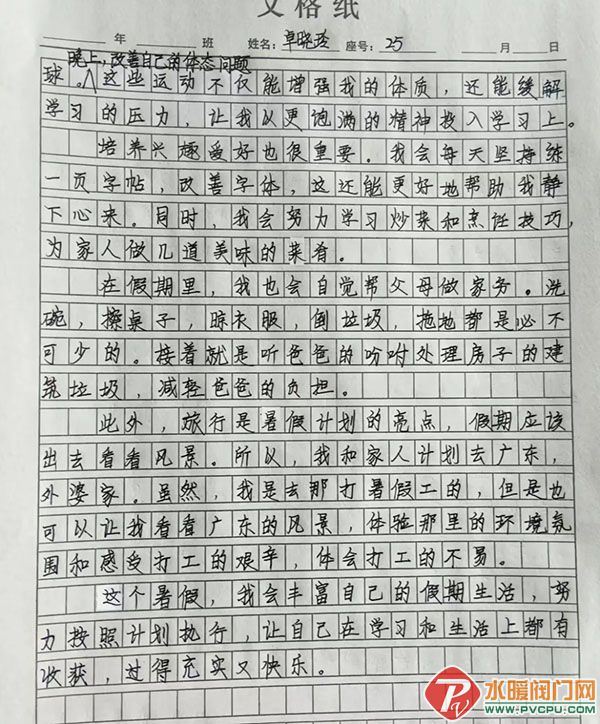 文格纸
年 班 姓名：卓晓玲 座号：25 月 日
晚上，改善自己的体态问题
球。这些运动不仅能增强我的体质，还能缓解
学习的压力，让我以更饱满的精神投入学习上。
培养兴趣爱好也很重要。我会每天坚持练
一页字帖，改善字体，这还能更好地帮助我静
下心来。同时，我会努力学习炒菜和烹饪技巧，
为家人做几道美味的菜肴。
在假期里，我也会自觉帮父母做家务。洗
碗，擦桌子，晾衣服，倒垃圾，拖地都是必不
可少的。接着就是听爸爸的吩咐处理房子的建
筑垃圾，减轻爸爸的负担。
此外，旅行是暑假计划的亮点，假期应该
出去看看风景。所以，我和家人计划去广东，
外婆家。虽然，我是去那打暑假工的，但是也
可以让我看看广东的风景，体验那里的环境氛
围和感受打工的艰辛，体会打工的不易。
这个暑假，我会丰富自己的假期生活，努
力按照计划执行，让自己在学习和生活上都有
收获，过得充实又快乐。
水暖阀门网
WWW.PVCPU.COM